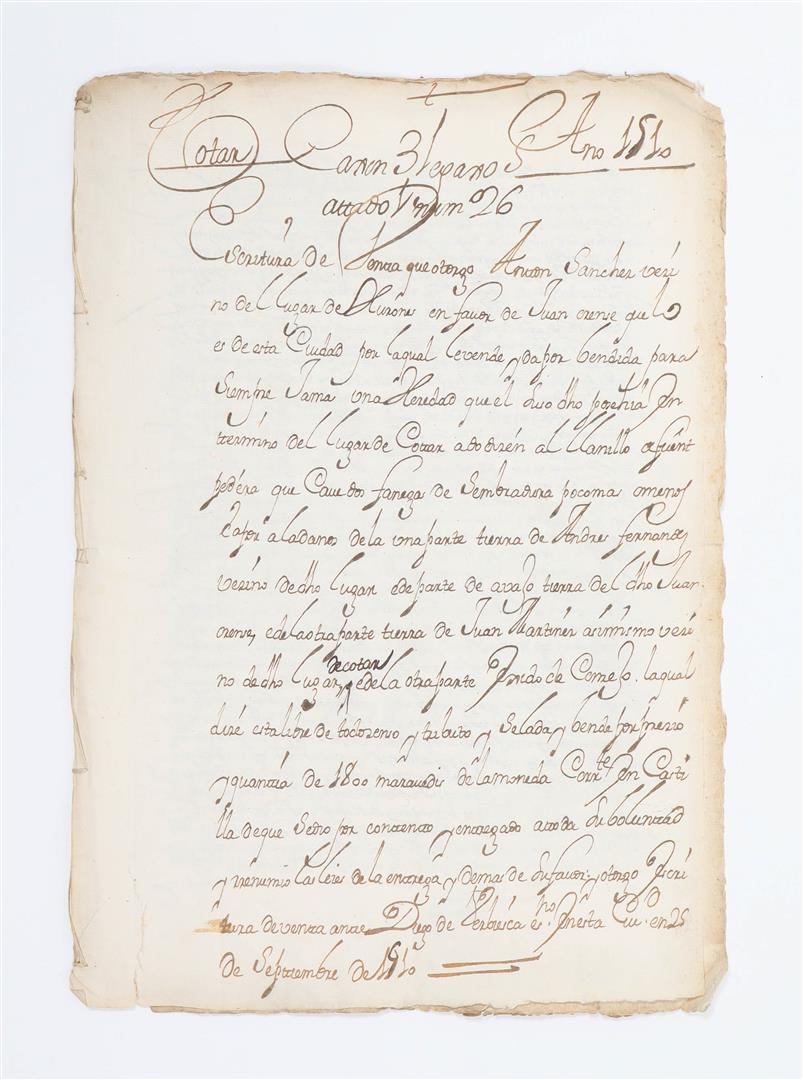 Cotar Caxon 3 legaxo 5 Año 1510
attado 1 num.º 26
Escritura de Venta que otorgo Anton Sanchez veçi
no del lugar de Hurones en favor de Juan orense que lo
es de esta Ciudad por la qual le vende y da por bendida para
Siempre Jamas una Heredad que el suso dho posehia En
termino del lugar de Cotar ado diçen al llanillo de fuent
pedera que Cave dos fanega de Sembradora poco mas o menos
a por aladanos de la una parte tierra de Andres fernandez
veçino de dho lugar e de parte de avaxo tierra del dho Juan
orense, e de la otra parte tierra de Juan Martinez asimismo veçi
no de dho lugar de cotar e de la otra parte Exido de Comexo. la qual
diçe esta libre de todo zenso y tributo y se la da y bende por prezio
y quantia de 1800 maravedis de la moneda Corrte. En Casti
lla de que Se dio por contento y entregado a toda Su boluntad
y renunzio las leies de la entrega y demas de Su favor. y otorgo Escri
tura de venta ante Diego de Verbiesca esno. En esta Ciud. en 25
de Septiembre de 1510